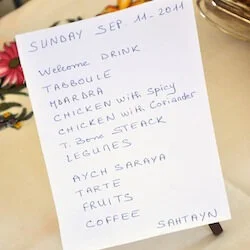 SUNDAY SEP 11-2011
Welcome DRINK
TABBOULE
MDARDRA
CHICKEN with Spicy
CHICKEN with Coriander
T. Bone STEACK
LEGUMES
AYCH SARAYA
TARTE
FRUITS
COFFEE
SAHTAYN